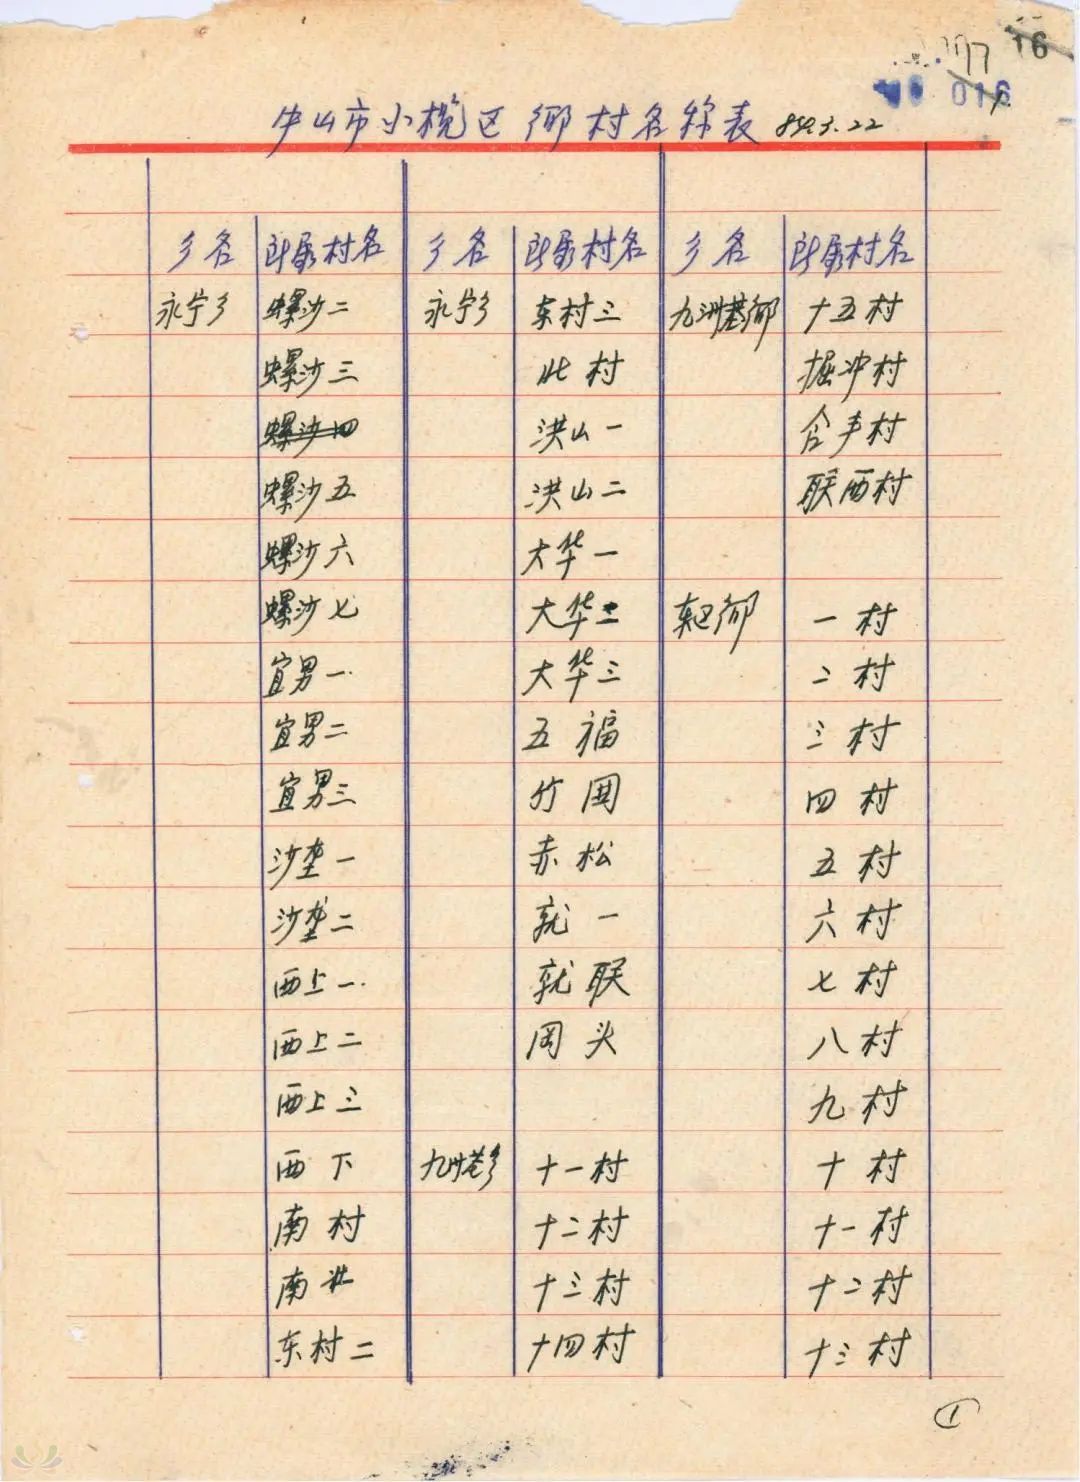 16
016
中山市小榄区 鄉村名称表 85.3.22
乡名 所属村名 乡名 所属村名 乡名 所属村名
永宁乡 螺沙二 永宁乡 东村三 九洲基鄉 十五村
螺沙三 北村 掘冲村
螺沙四 洪山一 合丰村
螺沙五 洪山二 联西村
螺沙六 大华一
螺沙七 大华二 东区鄉 一村
宜男一 大华三 二村
宜男二 五福 三村
宜男三 竹园 四村
沙垄一 赤松 五村
沙垄二 就一 六村
西上一 就联 七村
西上二 岡头 八村
西上三 九村
西下 九洲基乡 十一村 十村
南村 十二村 十一村
南北 十三村 十二村
东村二 十四村 十三村
1